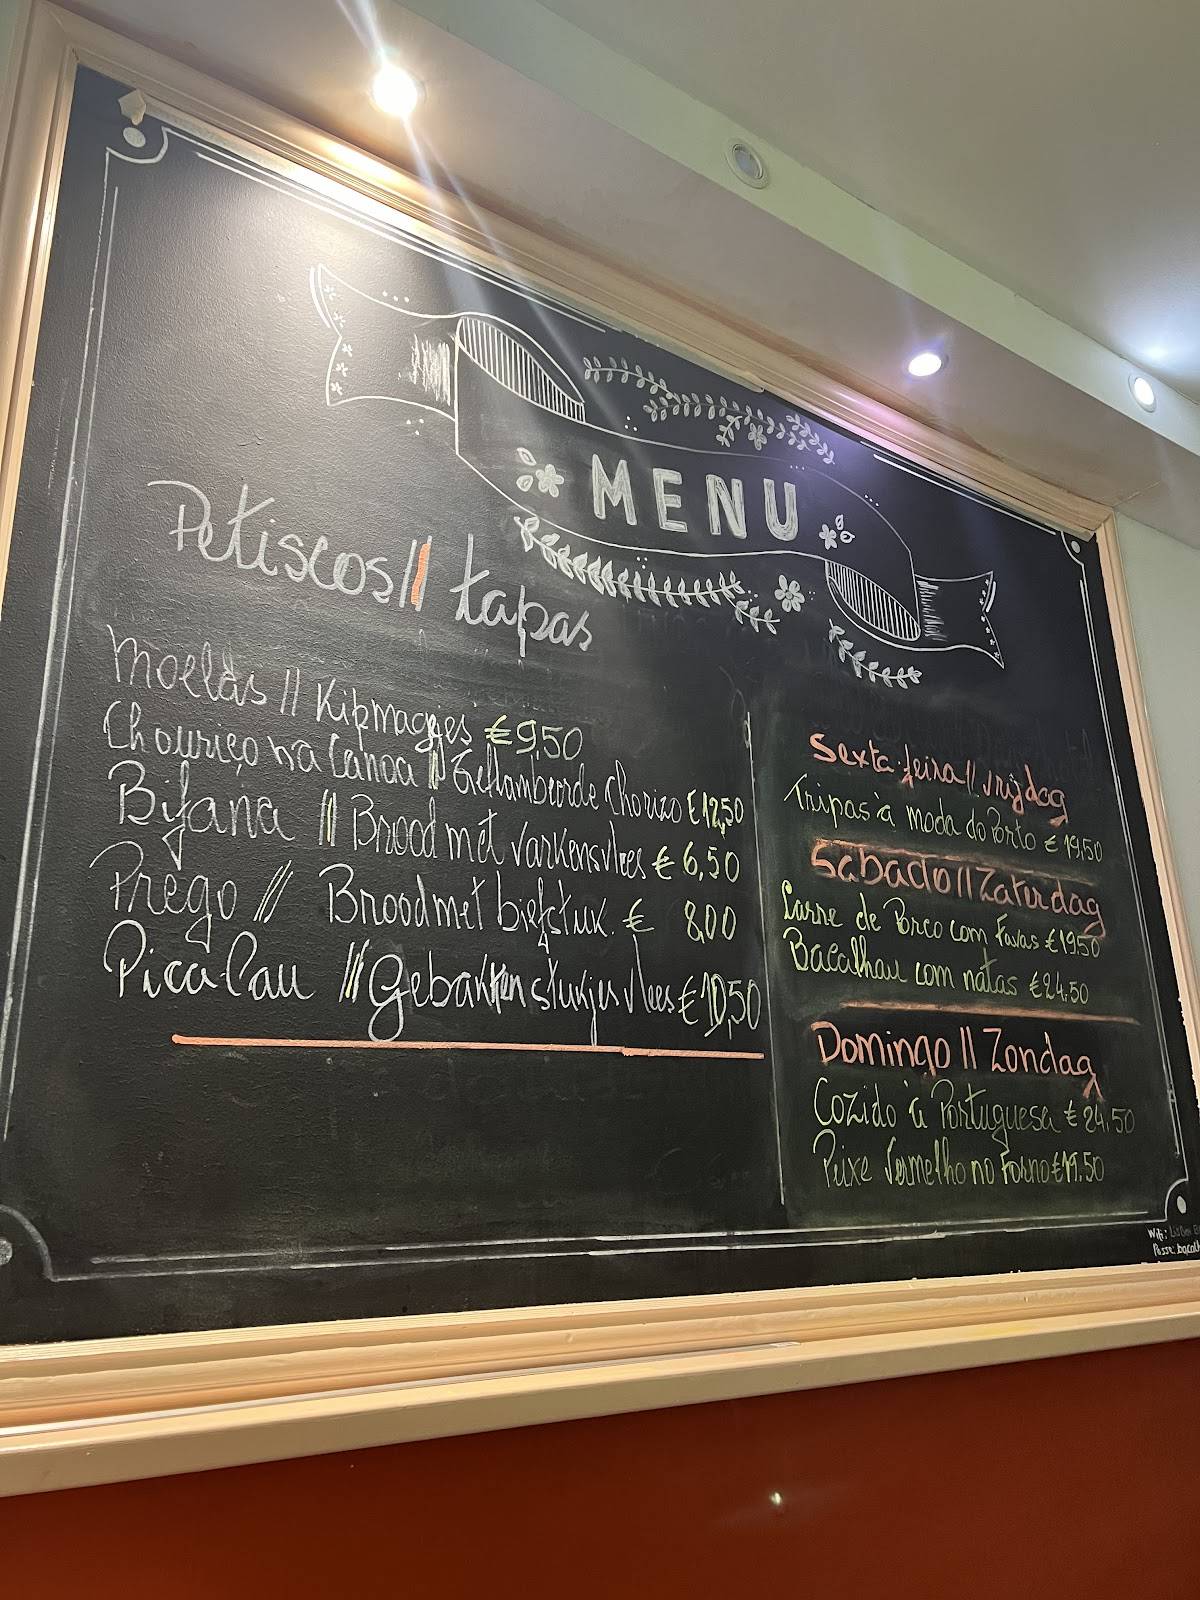 MENU
Petiscos // tapas
Moelas // Kipmagjes € 9,50
Chouriço na Canoa // Geflambeerde Chorizo € 12,50
Bifana // Brood met varkensvlees € 6,50
Prego // Brood met biefstuk. € 8,00
Pica-Pau // Gebakken stukjes vlees € 10,50
Sexta-feira // Vrijdag
Tripas à moda do Porto € 19,50
Sabado // Zaterdag
Carne de Porco com Favas € 19.50
Bacalhau com natas € 24.50
Domingo // Zondag
Cozido à Portuguesa € 24.50
Peixe Vermelho no Forno € 19.50
Wifi: Lisboa
Passe: bacalh